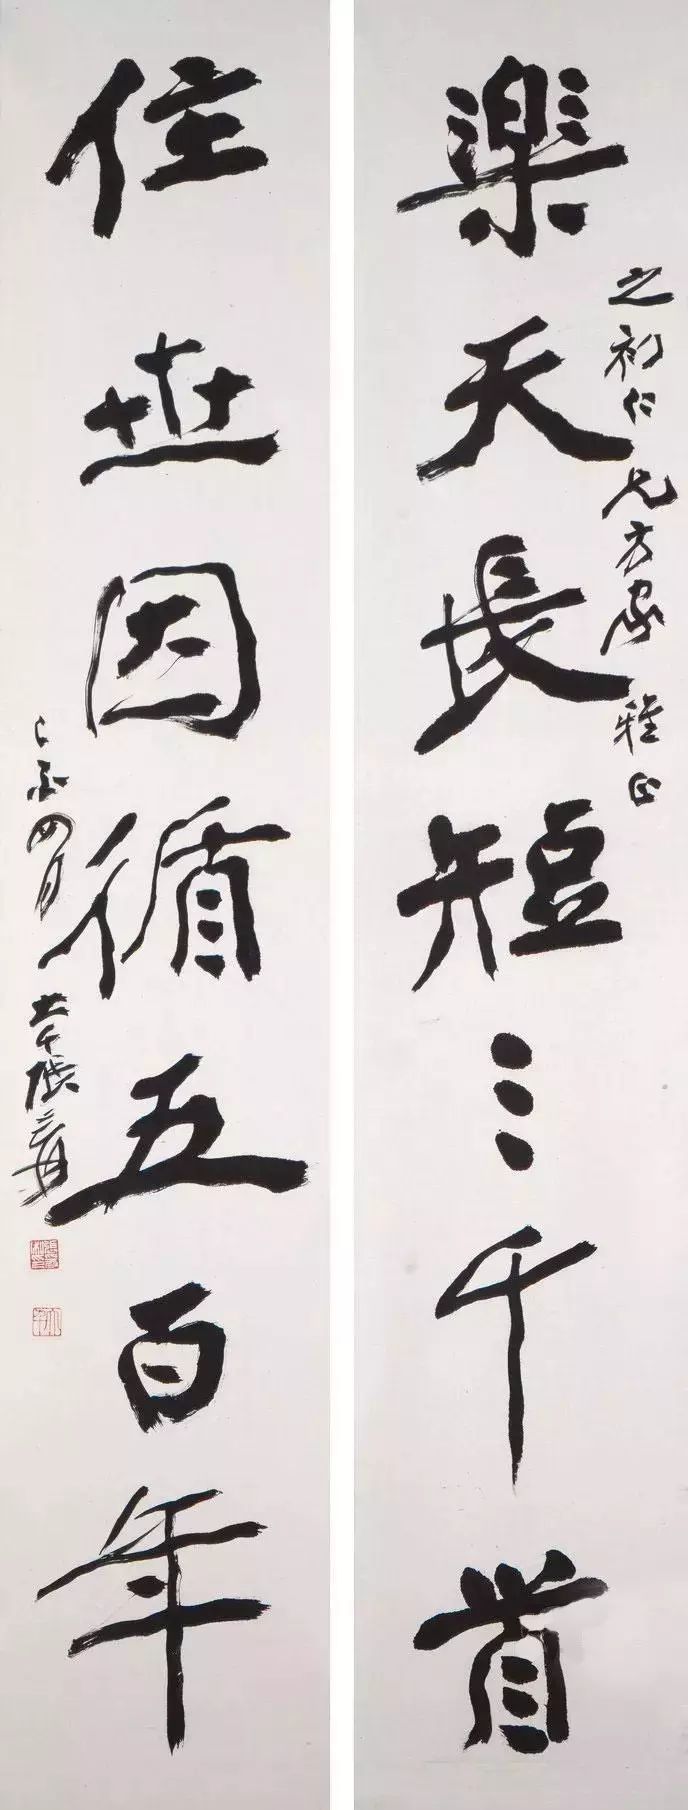 樂天長短三千首
之初仁兄方家雅正
住世因循五百年
己酉四月大千張爰